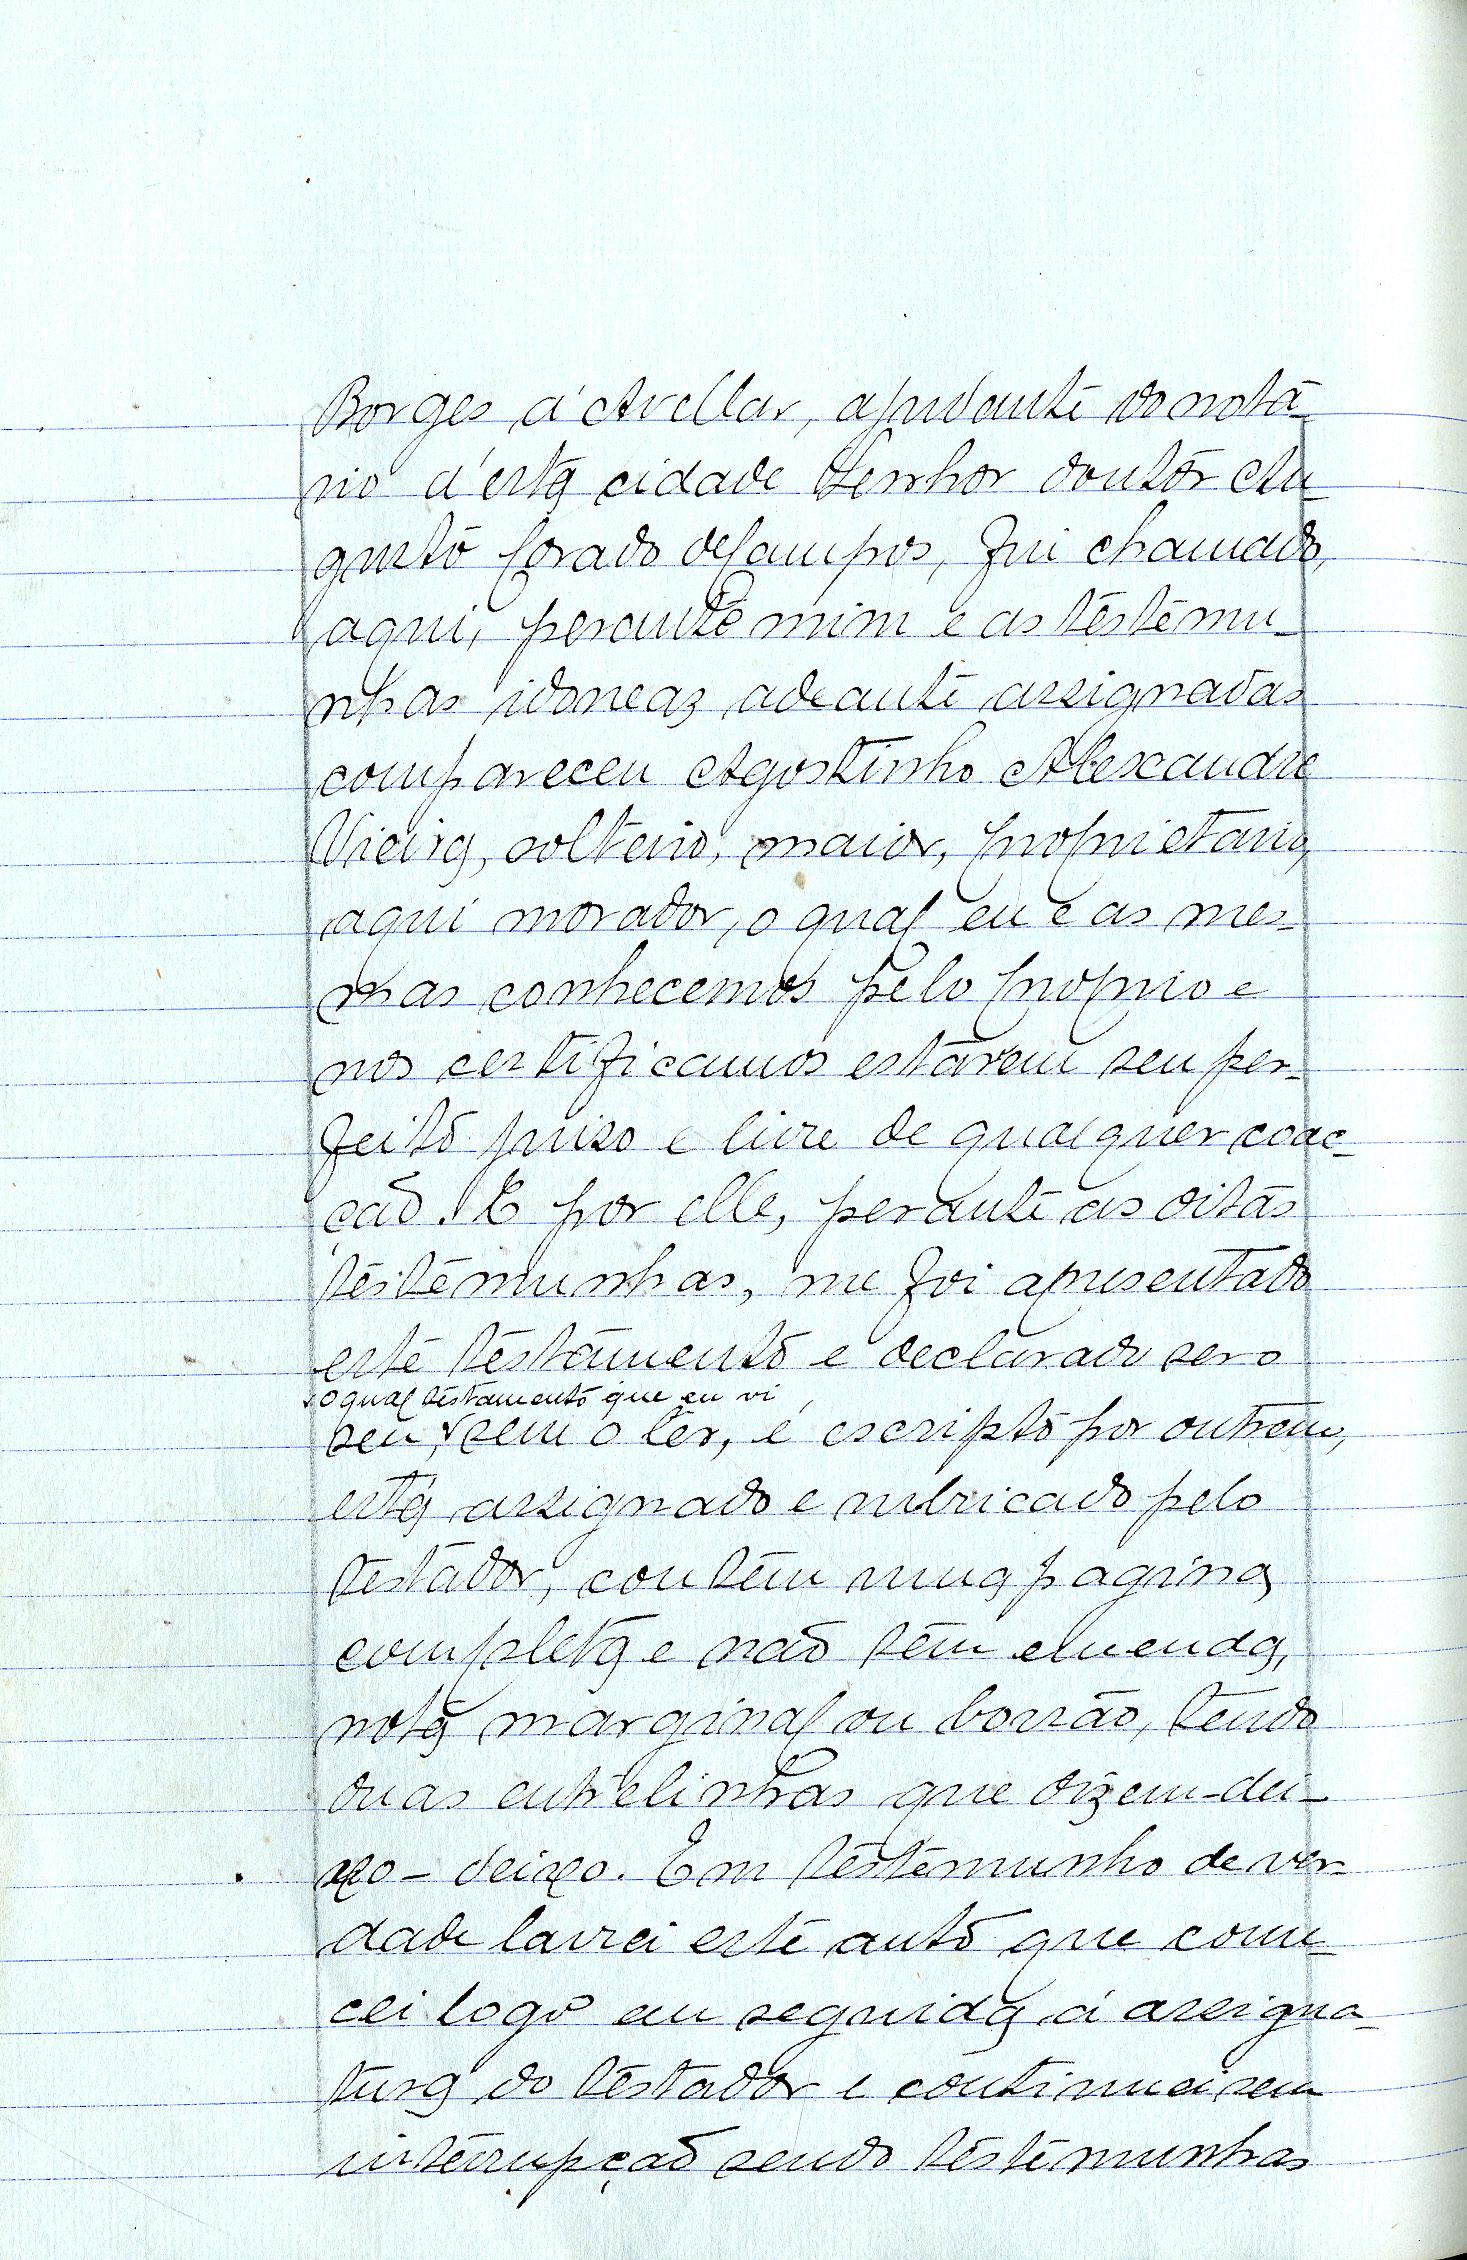 Borges d'Avellar, ajudante do nota-
rio d'esta cidade Senhor doutor Au-
gusto Corado de Campos, fui chamado,
aqui, perante mim e as testemu-
nhas idoneas adeante assignadas
compareceu Agostinho Alexandre
Vieira, solteiro, maior, proprietario,
aqui morador, o qual eu e as mes-
mas conhecemos pelo proprio e
nos certificamos estar em seu per-
feito juizo e livre de qualquer coac-
ção. E por elle, perante as ditas
testemunhas, me foi apresentado
este testamento e declarado ser o
o qual testamento que eu vi,
seu, sem o lêr, é escripto por outrem,
está assignado e rubricado pelo
testador, contém uma pagina
completa e não tem emenda,
nota marginal ou borrão, tendo
duas entrelinhas que dizem-dei-
xo - deixo. Em testemunho de ver-
dade lavrei este auto que come-
cei logo em seguida á assigna-
tura do testador e continuei sem
interrupção sendo testemunhas